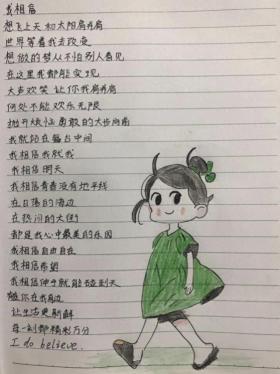 我相信
想飞上天和太阳肩并肩
世界等着我去改变
想做的梦从不怕别人看见
在这里我都能实现
大声欢笑 让你我肩并肩
何处不能欢乐无限
抛开烦恼勇敢的大步向前
我就站在舞台中间
我相信我就我
我相信明天
我相信青春没有地平线
在日落的海边
在热闹的大街
都是我心中最美的乐园
我相信自由自在
我相信希望
我相信伸手就能碰到天
让生活更新鲜
每一刻都精彩万分
I do believe.